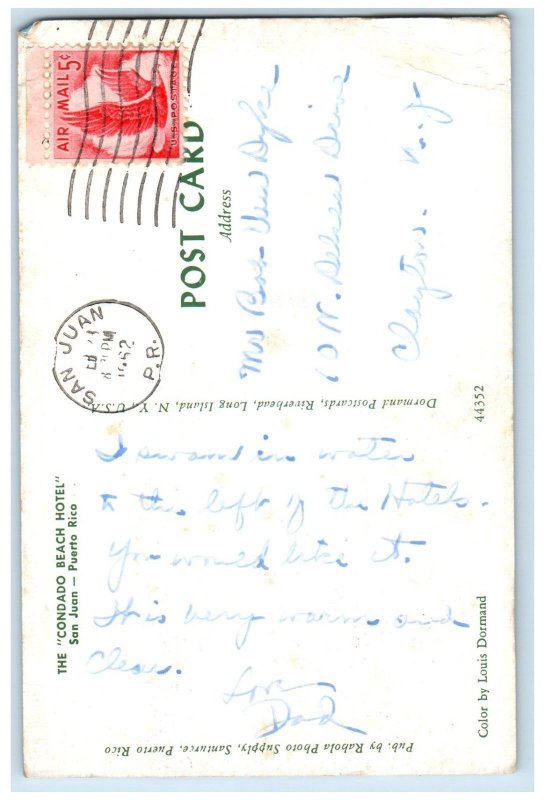 THE "CONDADO BEACH HOTEL"
San Juan — Puerto Rico
I swam in water
to the left of the Hotels.
You would like it.
It is very warm and
Clear.
Love
Dad
Pub. by Rabola Photo Supply, Santurce, Puerto Rico
Color by Louis Dormand
Dormand Postcards, Riverhead, Long Island, N. Y., U.S.A.
44352
SAN JUAN
PM
1962
P.R.
AIR MAIL 5¢
U.S. POSTAGE
POST CARD
Address
Mrs Bob Van Dyke
10 N. Drive
Clayton. N. J